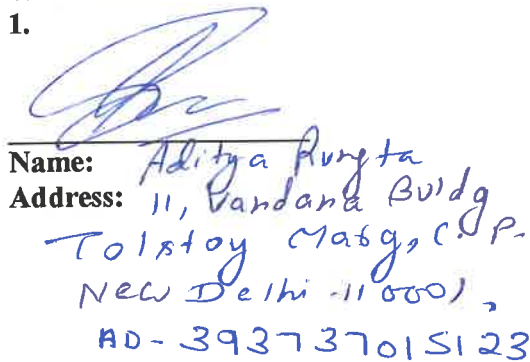 1.
Name: Aditya Rungta
Address: 11, Vandana Buldg
Tolstoy Marg, C. P.
New Delhi - 110001,
AD - 393737015123